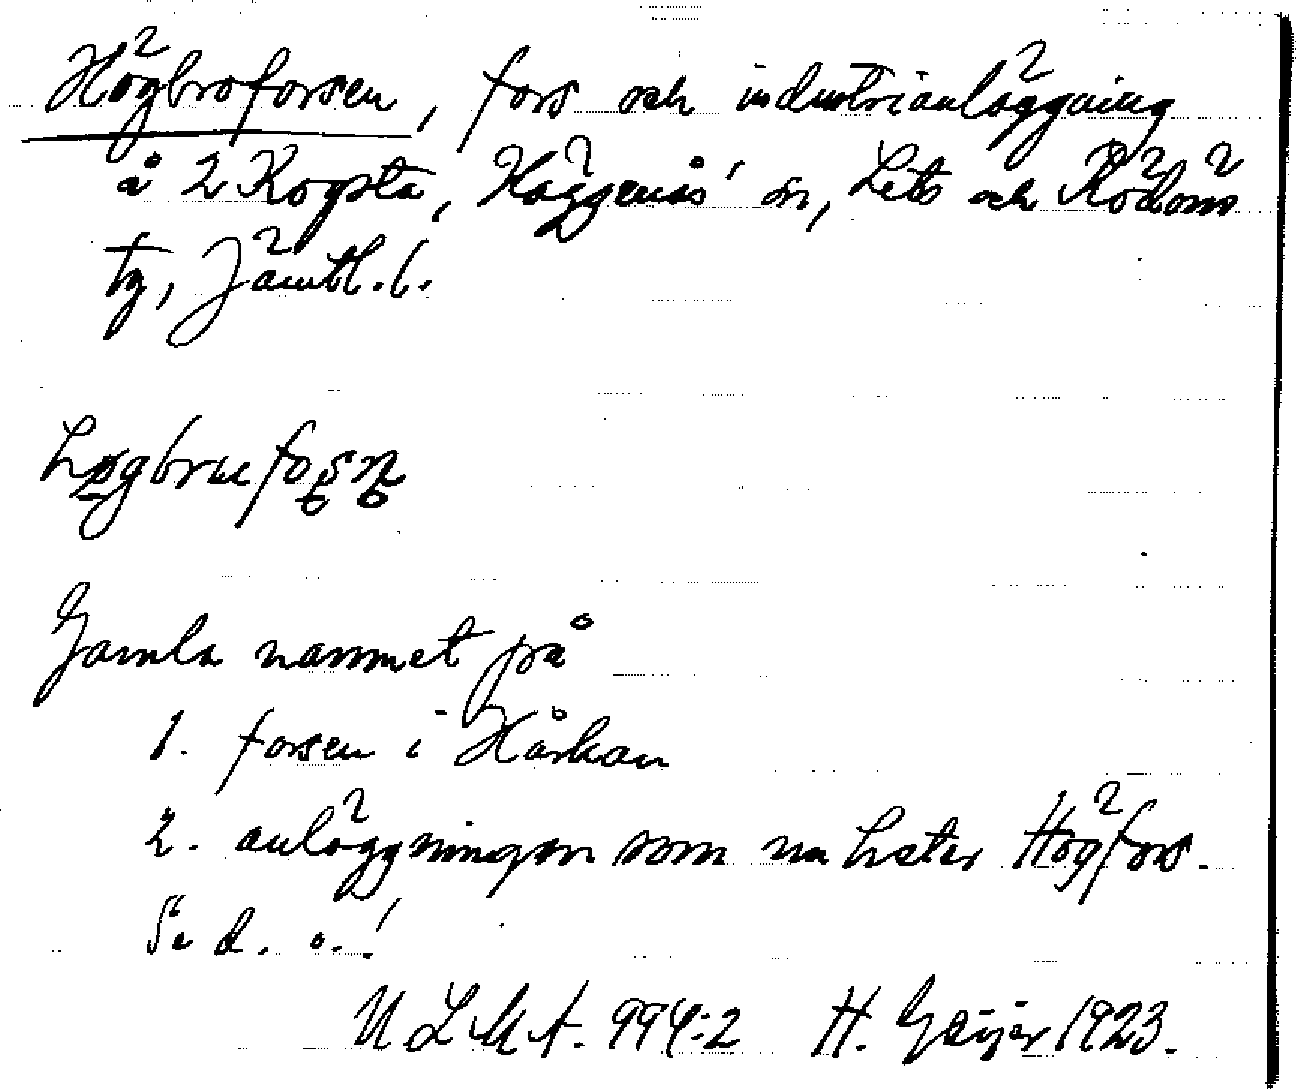 Högbroforsen, fors och industrianläggning
å 2 Rogsta, Häggenås' sn, Lits och Rödöns
tg, Jämtl. l.
høgbruefoşn̥
Gamla namnet på
1. forsen i Hårkan
2. anläggningen som nu heter Högfors.
Se d. o.!
ULMA. 994:2 H. Geijer 1923.